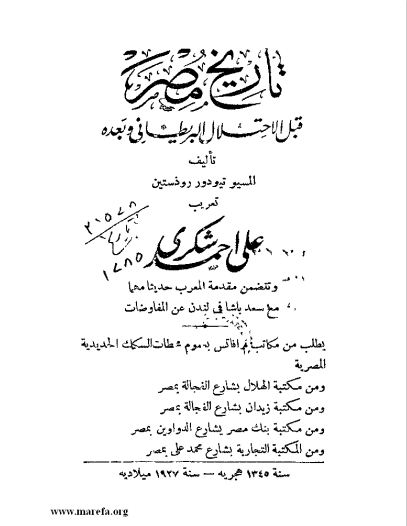 تاريخ مصر
قبل الاحتلال البريطاني وبعده
تأليف
المسيو تيودور روذستين
تعريب
على احمد شكرى
٢١٥٧٨
١٢٨٥
وتتضمن مقدمة المعرب حديثا مهما
مع سعد باشا في لندن عن المفاوضات
يطلب من مكاتب بعموم محطات السكك الحديدية
المصرية
ومن مكتبة الهلال بشارع الفجالة بمصر
ومن مكتبة زيدان بشارع الفجالة بمصر
ومن مكتبة بنك مصر بشارع الدواوين بمصر
ومن المكتبة التجارية بشارع محمد على بمصر
سنة ١٣٤٥ هجريه — سنة ١٩٢٧ ميلاديه
www.marefa.org